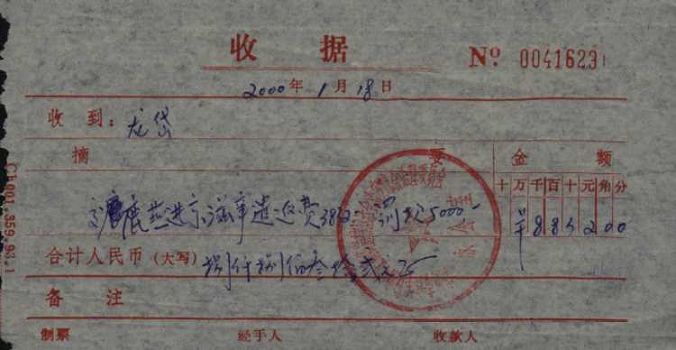 收 据 Nº 0041623
2000年1月18日
收 到：龙岱
摘 要 金 额
十万千百十元角分
交 燕进京滋事遣返费3832.- 罚款5000.-
¥883200
合计人民币（大写）捌仟捌佰叁拾贰元正
备 注
制票 经手人 收款人